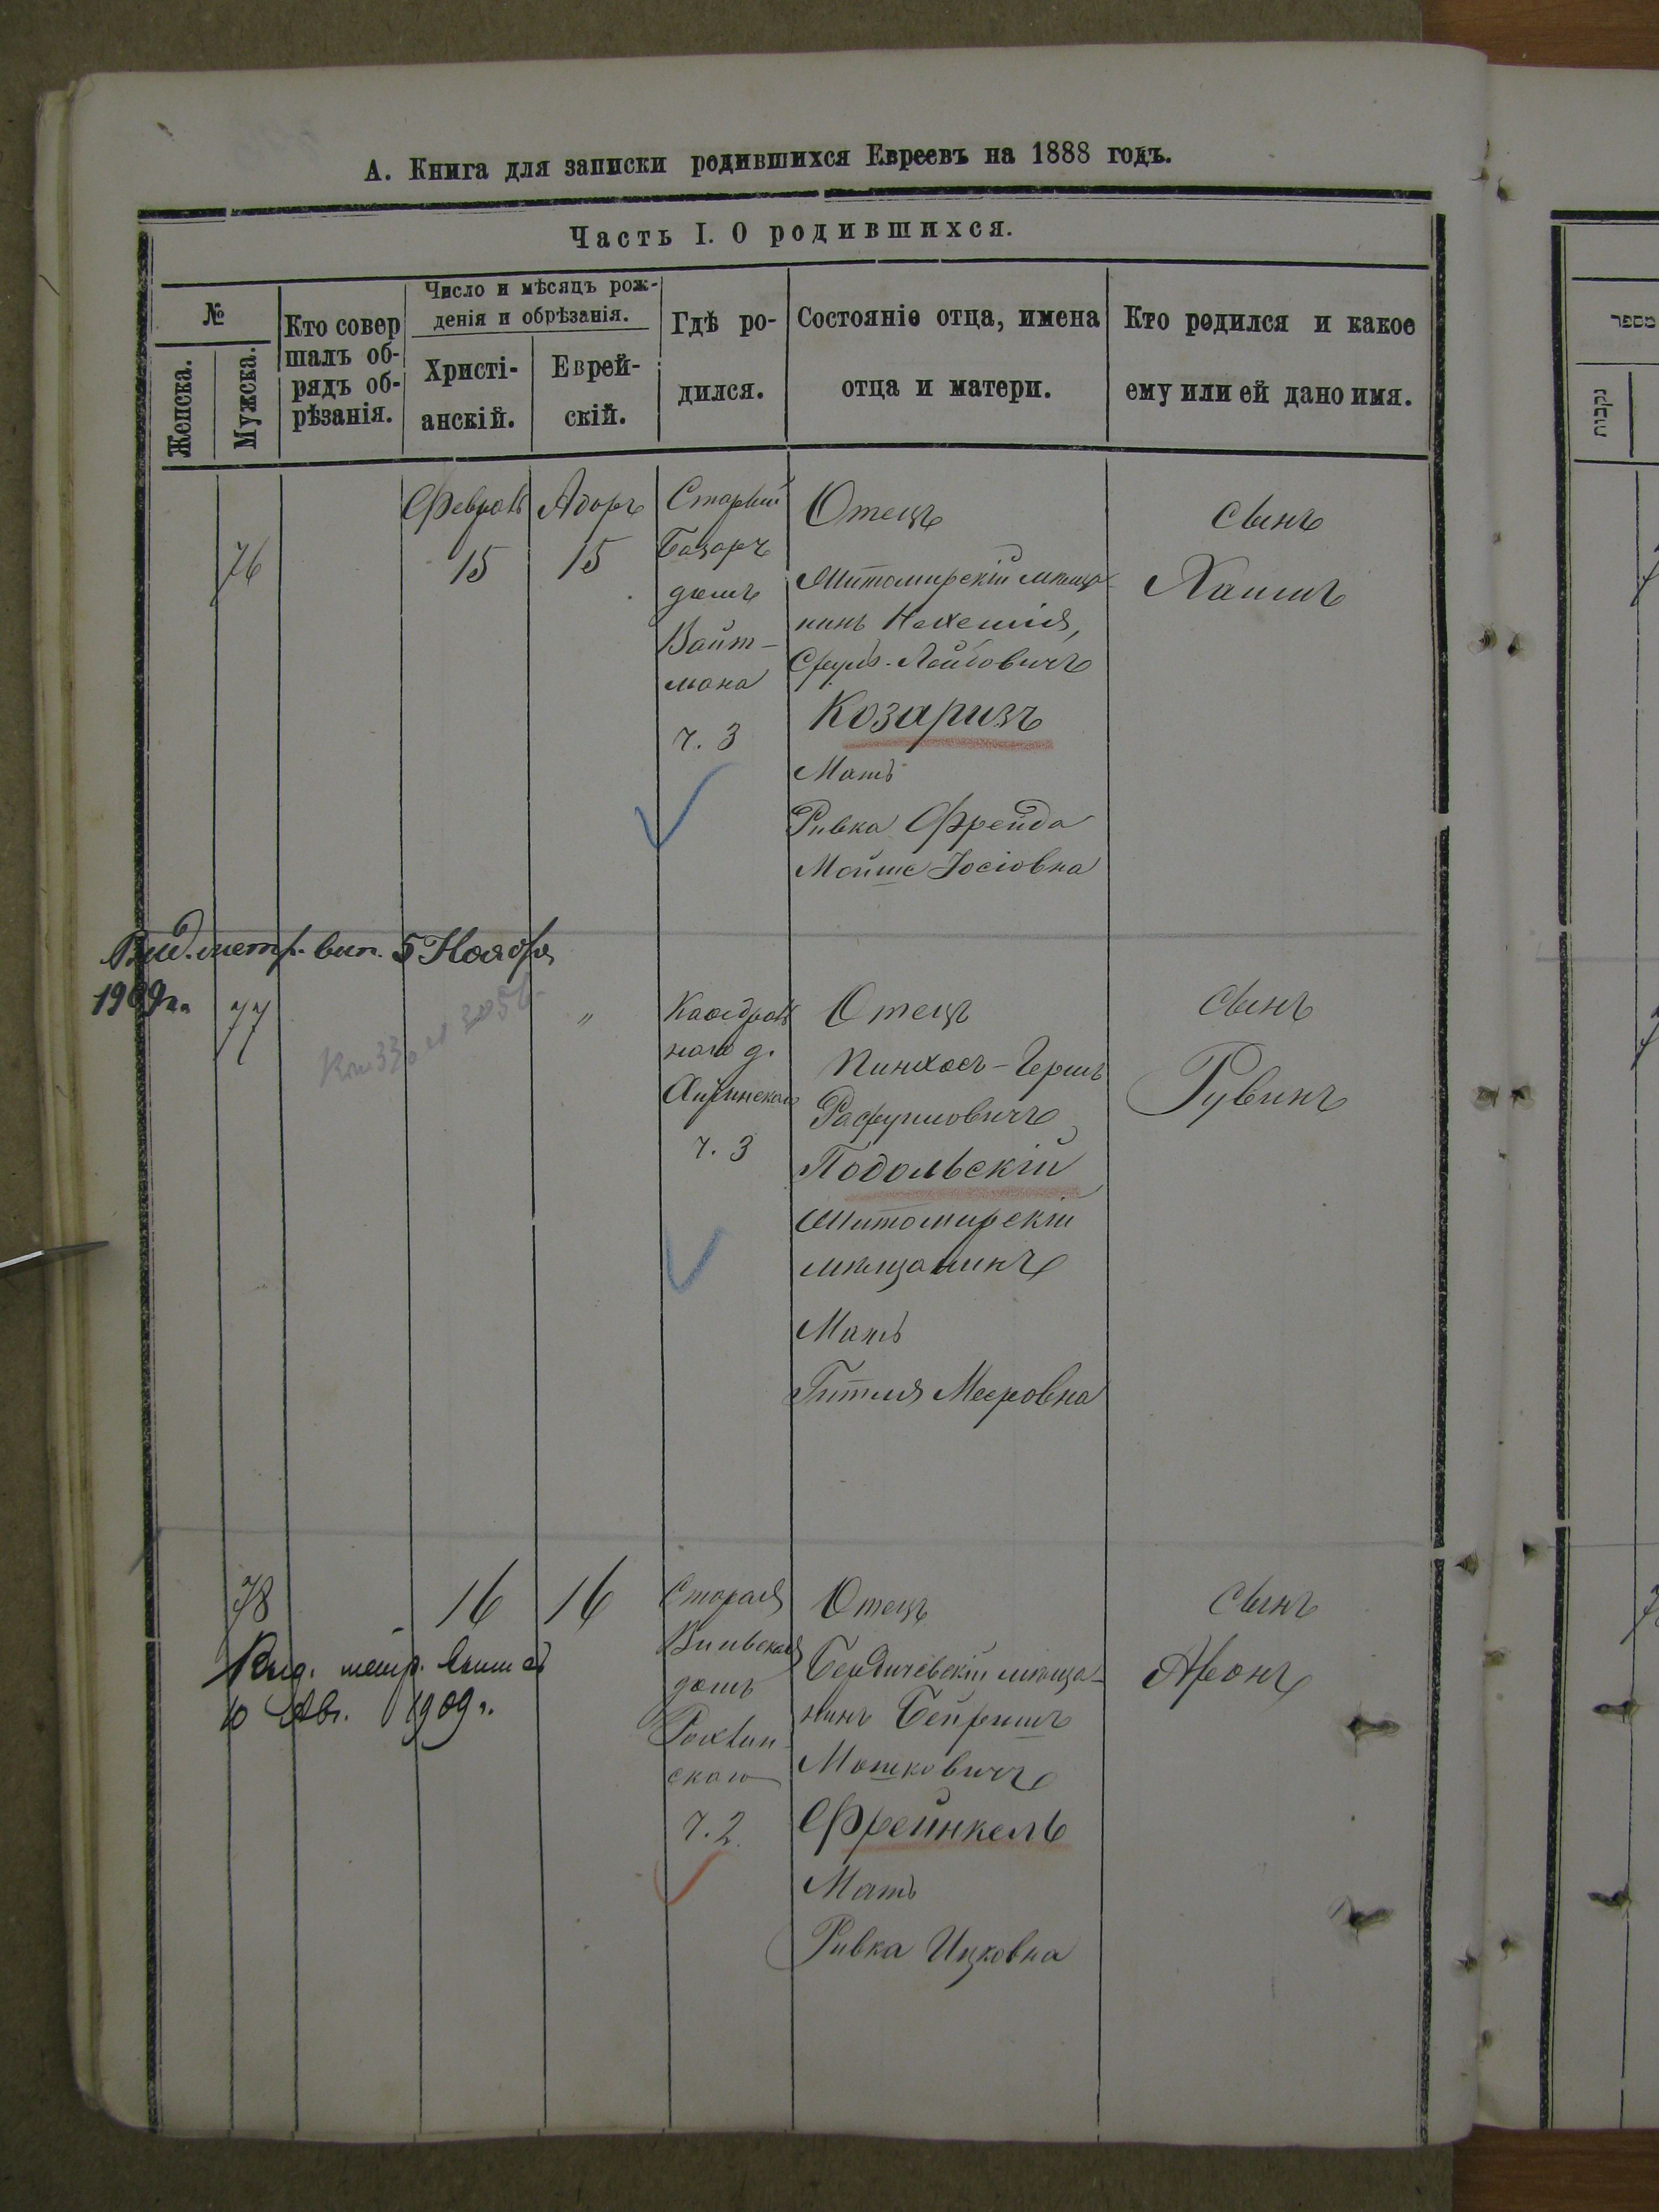 А. Книга для записки родившихся Евреевъ на 1888 годъ.
Часть I. О родившихся.
№
Женска.
Мужска.
Кто совер
шалъ об-
рядъ об-
рѣзанія.
Число и мѣсяцъ рож-
денія и обрѣзанія.
Христі-
анскій.
Еврей-
скій.
Гдѣ ро-
дился.
Состояніе отца, имена
отца и матери.
Кто родился и какое
ему или ей дано имя.
76
Февраль
15
Адоръ
15
Старый
Базаръ
домъ
Вайт-
мана
ч. 3
Отецъ
Житомирскій мѣща-
нинъ Нехемія,
Сруль-Лейбовичъ
Козаризъ
Мать
Ривка Фрейда
Мойше Іосіовна
сынъ
Хаимъ
Выд. метр. вып. 5 Ноября
1909 г.
77
"
Каѳедраль
наго д.
ч. 3
Отецъ
Пинхосъ-Гершъ
Рафуиловичъ
Подольскій
Житомирскій
мѣщанинъ
Мать
Гитля Мееровна
сынъ
Рувинъ
78
16
16
Выд. метр. выпись
10 Авг. 1909 г.
Старая
Вильская
домъ
ч. 2.
Отецъ
Бердичевскій мѣща-
нинъ Бейришъ
Мошковичъ
Фрейнкель
Мать
Ривка Ицковна
сынъ
Аронъ
מספר
נקבות